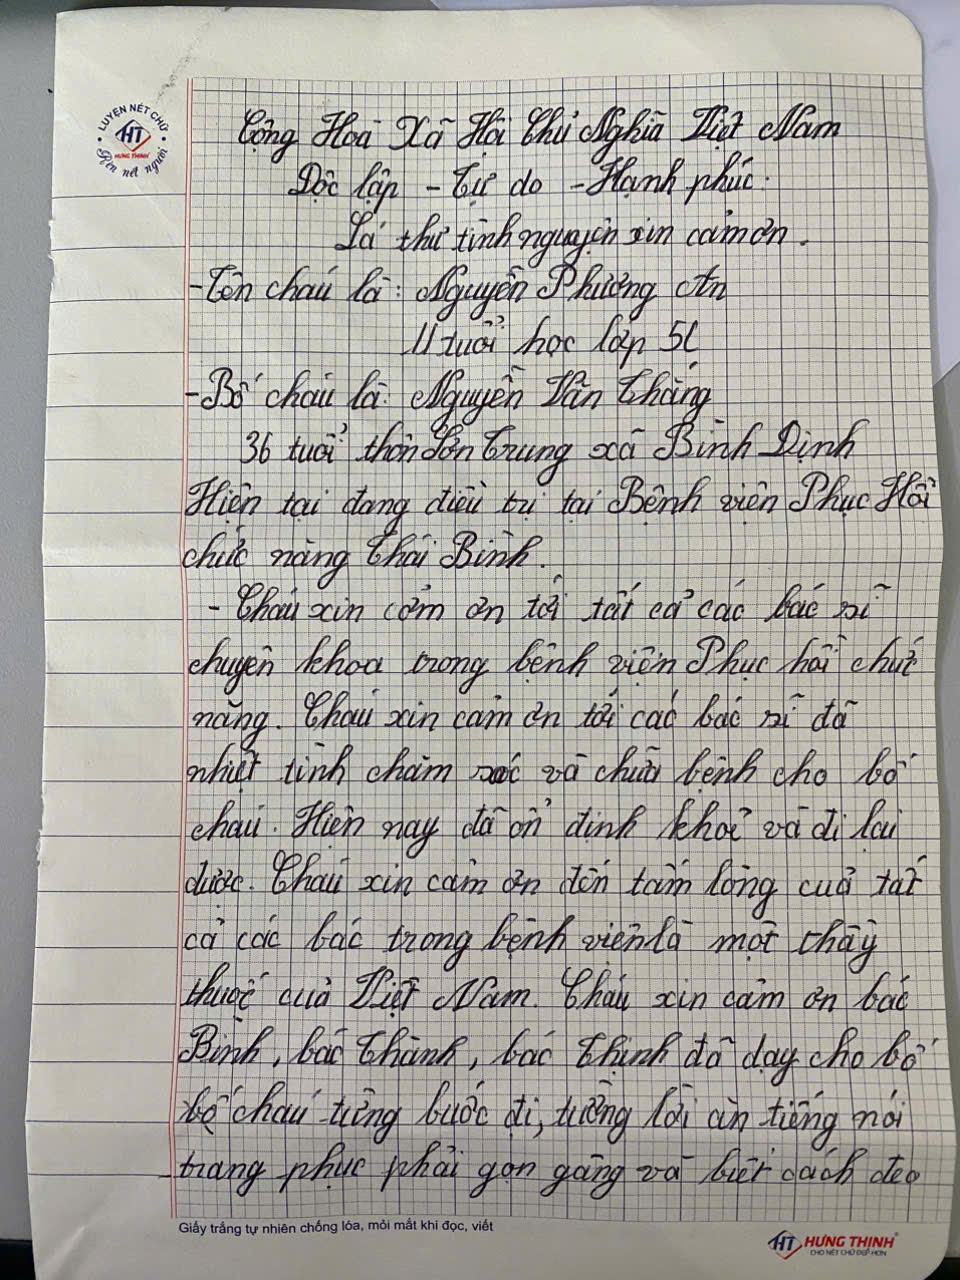 LUYỆN NÉT CHỮ
HT
HƯNG THỊNH
Rèn nét người
Cộng Hoà Xã Hội Chủ Nghĩa Việt Nam
Độc lập - Tự do - Hạnh phúc.
Lá thư tình nguyện xin cảm ơn.
- Tên cháu là: Nguyễn Phương An
11 tuổi học lớp 5C
- Bố cháu là: Nguyễn Văn Thắng
36 tuổi thôn Sơn Trung xã Bình Định
Hiện tại đang điều trị tại Bệnh viện Phục Hồi
chức năng Thái Bình.
- Cháu xin cảm ơn tới tất cả các bác sĩ
chuyên khoa trong bệnh viện Phục hồi chức
năng. Cháu xin cảm ơn tới các bác sĩ đã
nhiệt tình chăm sóc và chữa bệnh cho bố
cháu. Hiện nay đã ổn định khoẻ và đi lại
được. Cháu xin cảm ơn đến tấm lòng của tất
cả các bác trong bệnh viện là một thầy
thuốc của Việt Nam. Cháu xin cảm ơn bác
Bình, bác Thành, bác Thịnh đã dạy cho bố
bố cháu từng bước đi, từng lời ăn tiếng nói
trang phục phải gọn gàng và biết cách đeo
Giấy trắng tự nhiên chống lóa, mỏi mắt khi đọc, viết
HT HƯNG THỊNH
CHO NÉT CHỮ ĐẸP HƠN